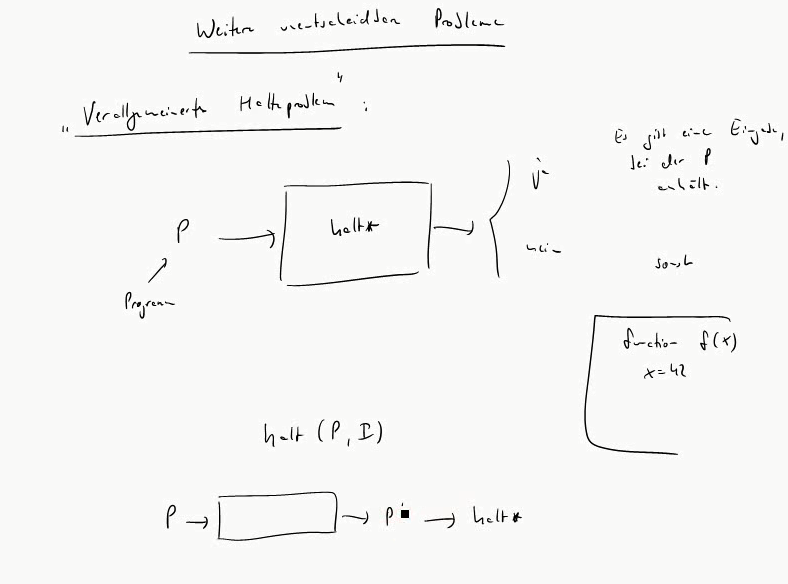 Weitere unentscheidbare Probleme
„Verallgemeinertes Halteproblem“:
Es gibt eine Eingabe,
bei der P
anhält.
ja
P
halt*
nein
sonst
Programm
function f(x)
x=42
halt (P, I)
P
P
halt*